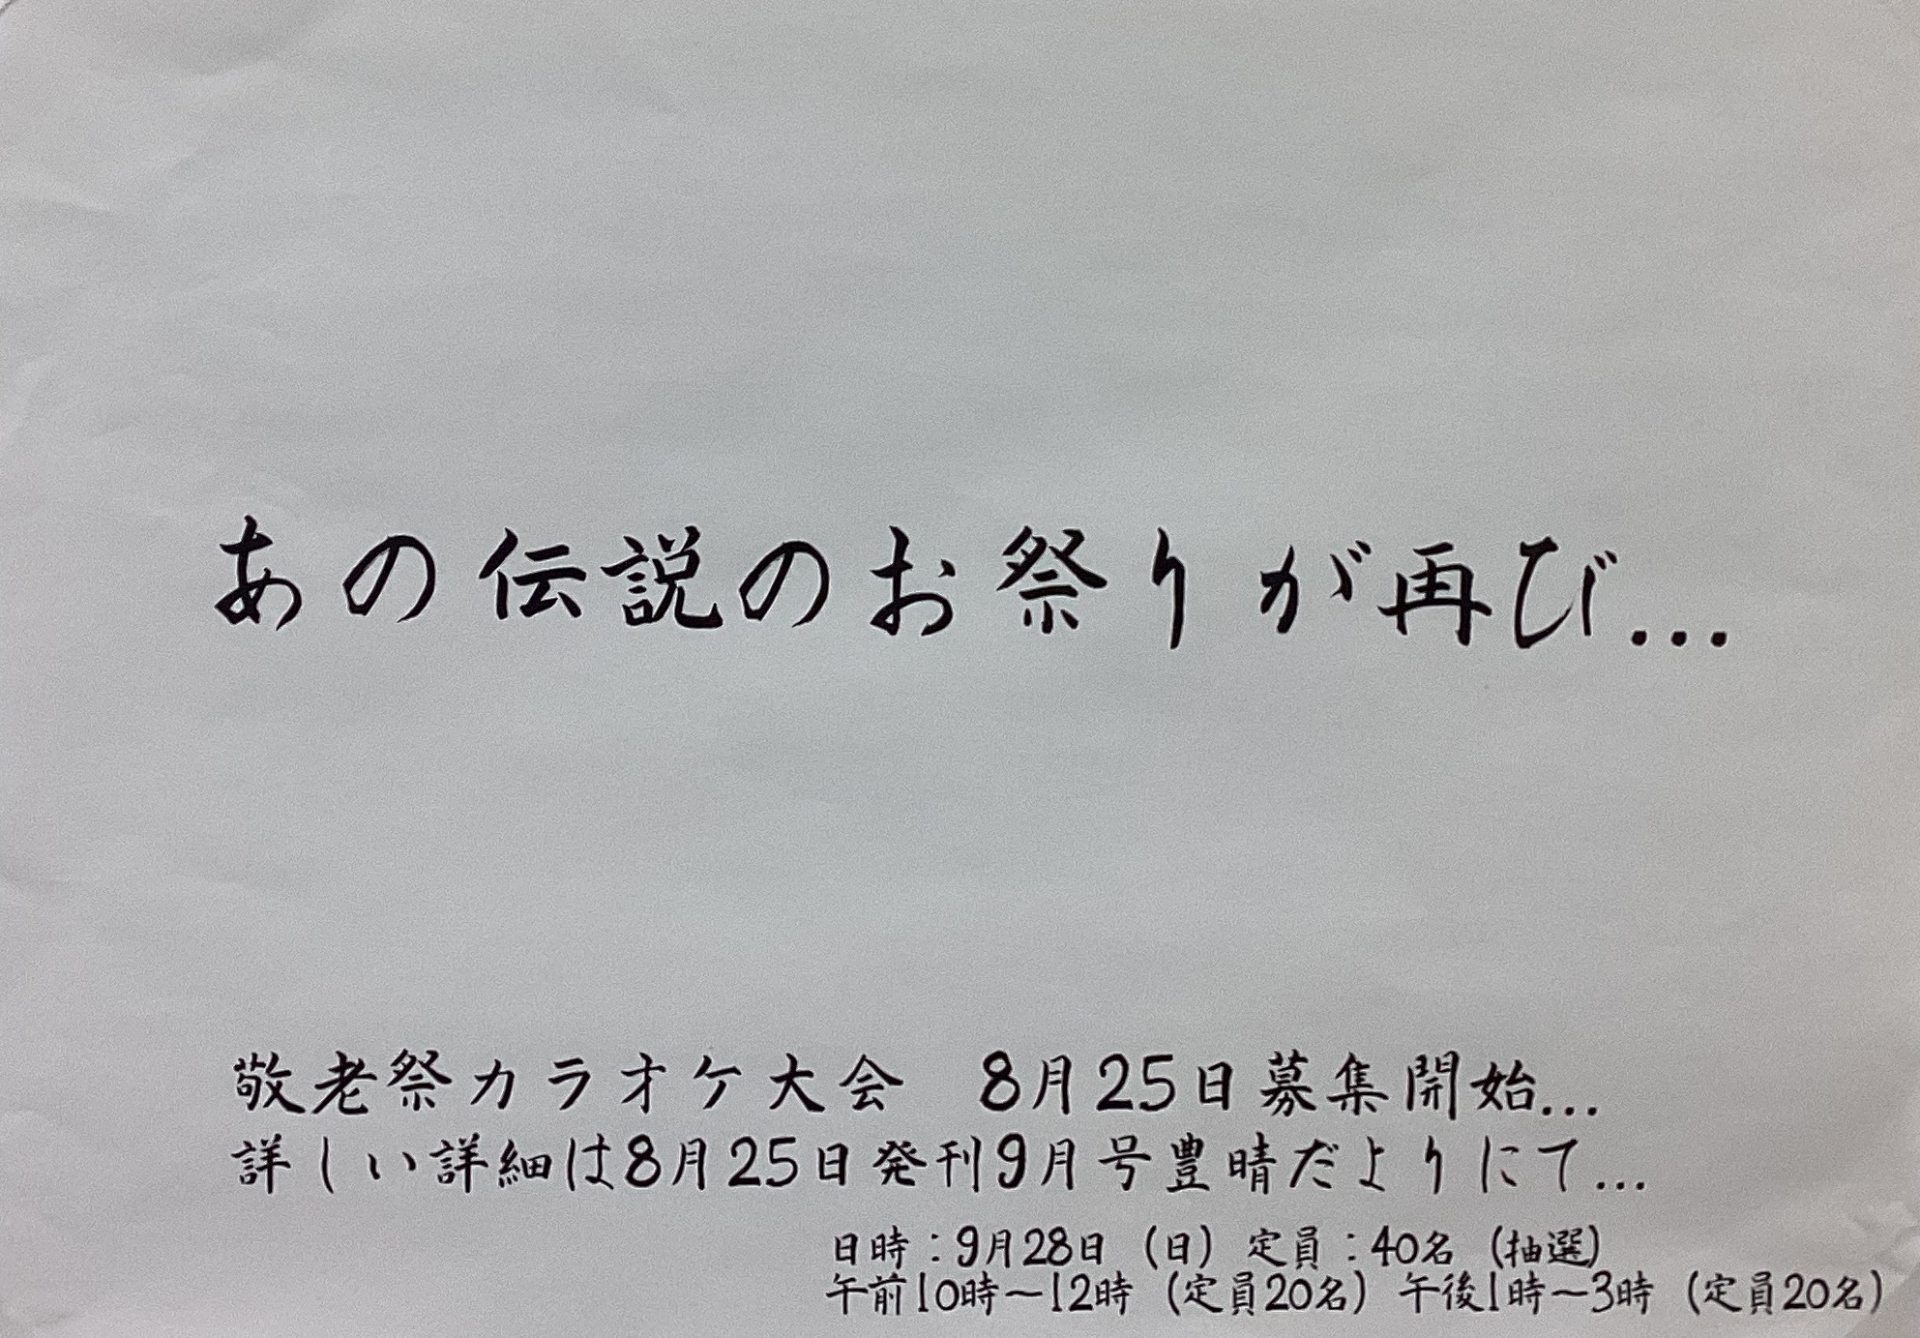 あの伝説のお祭りが再び...
敬老祭カラオケ大会　8月25日募集開始...
詳しい詳細は8月25日発刊9月号豊晴だよりにて...
日時：9月28日（日）定員：40名（抽選）
午前10時～12時（定員20名）午後1時～3時（定員20名）